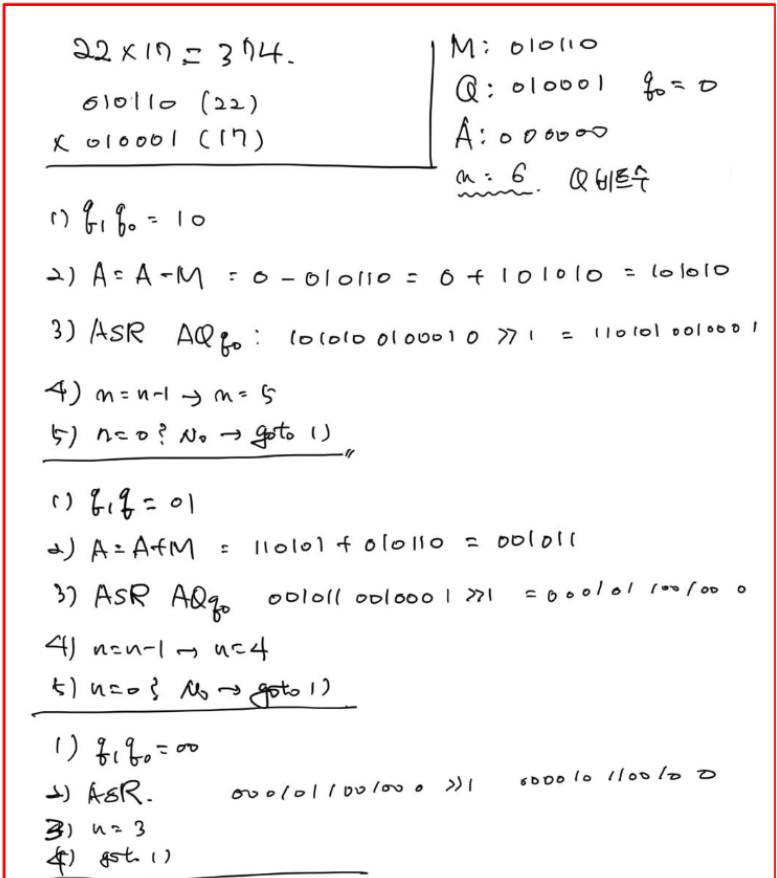 22 × 17 = 374.
010110 (22)
× 010001 (17)
M: 010110
Q: 010001 q₀ = 0
A: 000000
n = 6. Q 비트수
1) q₁q₀ = 10
2) A = A - M = 0 - 010110 = 0 + 101010 = 101010
3) ASR AQq₀ : 101010 010001 0 >> 1 = 110101 001000 1
4) n = n-1 → n = 5
5) n = 0? No → goto 1)
1) q₁q = 01
2) A = A+M = 110101 + 010110 = 001011
3) ASR AQq₀ 001011 001000 1 >>1 = 000101 100100 0
4) n=n-1 → n=4
5) n=0? No → goto 1)
1) q₁q₀ = 00
2) ASR. 000101 100100 0 >>1 000010 110010 0
3) n = 3
4) goto 1)